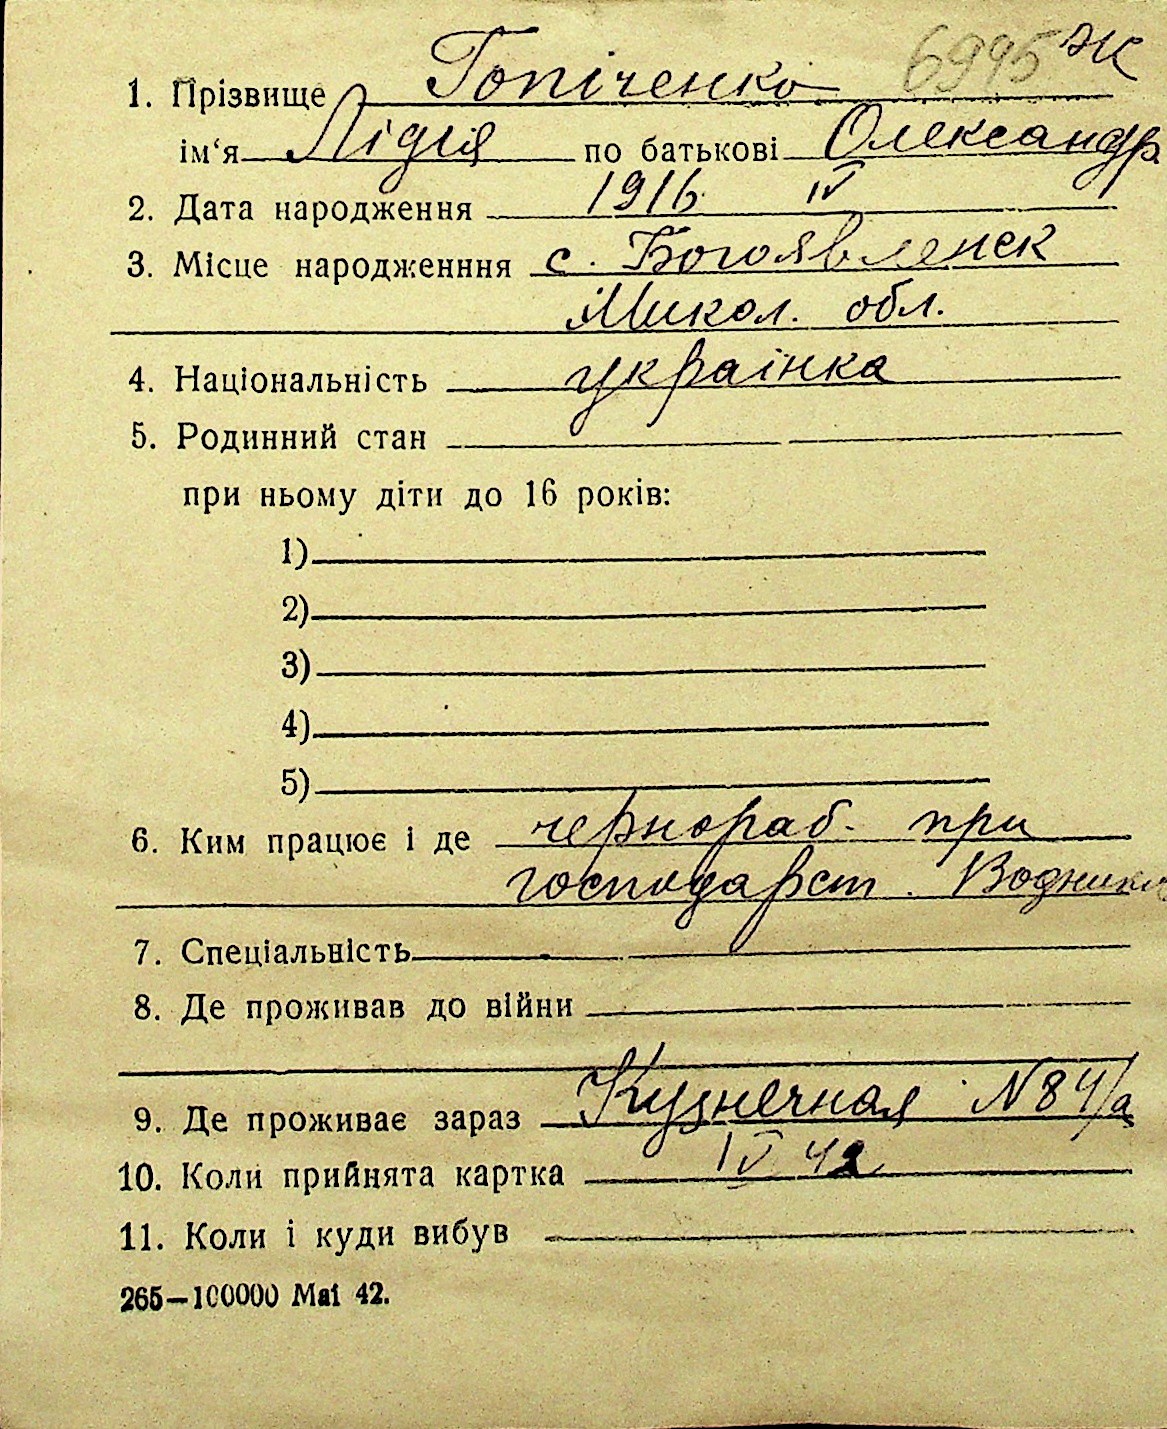 6995 Ж
1. Прізвище Гопіченко
ім‘я Лідія по батькові Олександр.
2. Дата народження 1916 IV
3. Місце народженння с. Богоявленск
Микол. обл.
4. Національність українка
5. Родинний стан
при ньому діти до 16 років:
1)
2)
3)
4)
5)
6. Ким працює і де чернораб. при
господарст. Водника
7. Спеціальність
8. Де проживав до війни
9. Де проживає зараз Кузнечная N 84/а
10. Коли прийнята картка IV 42
11. Коли і куди вибув
265—100000 Mai 42.